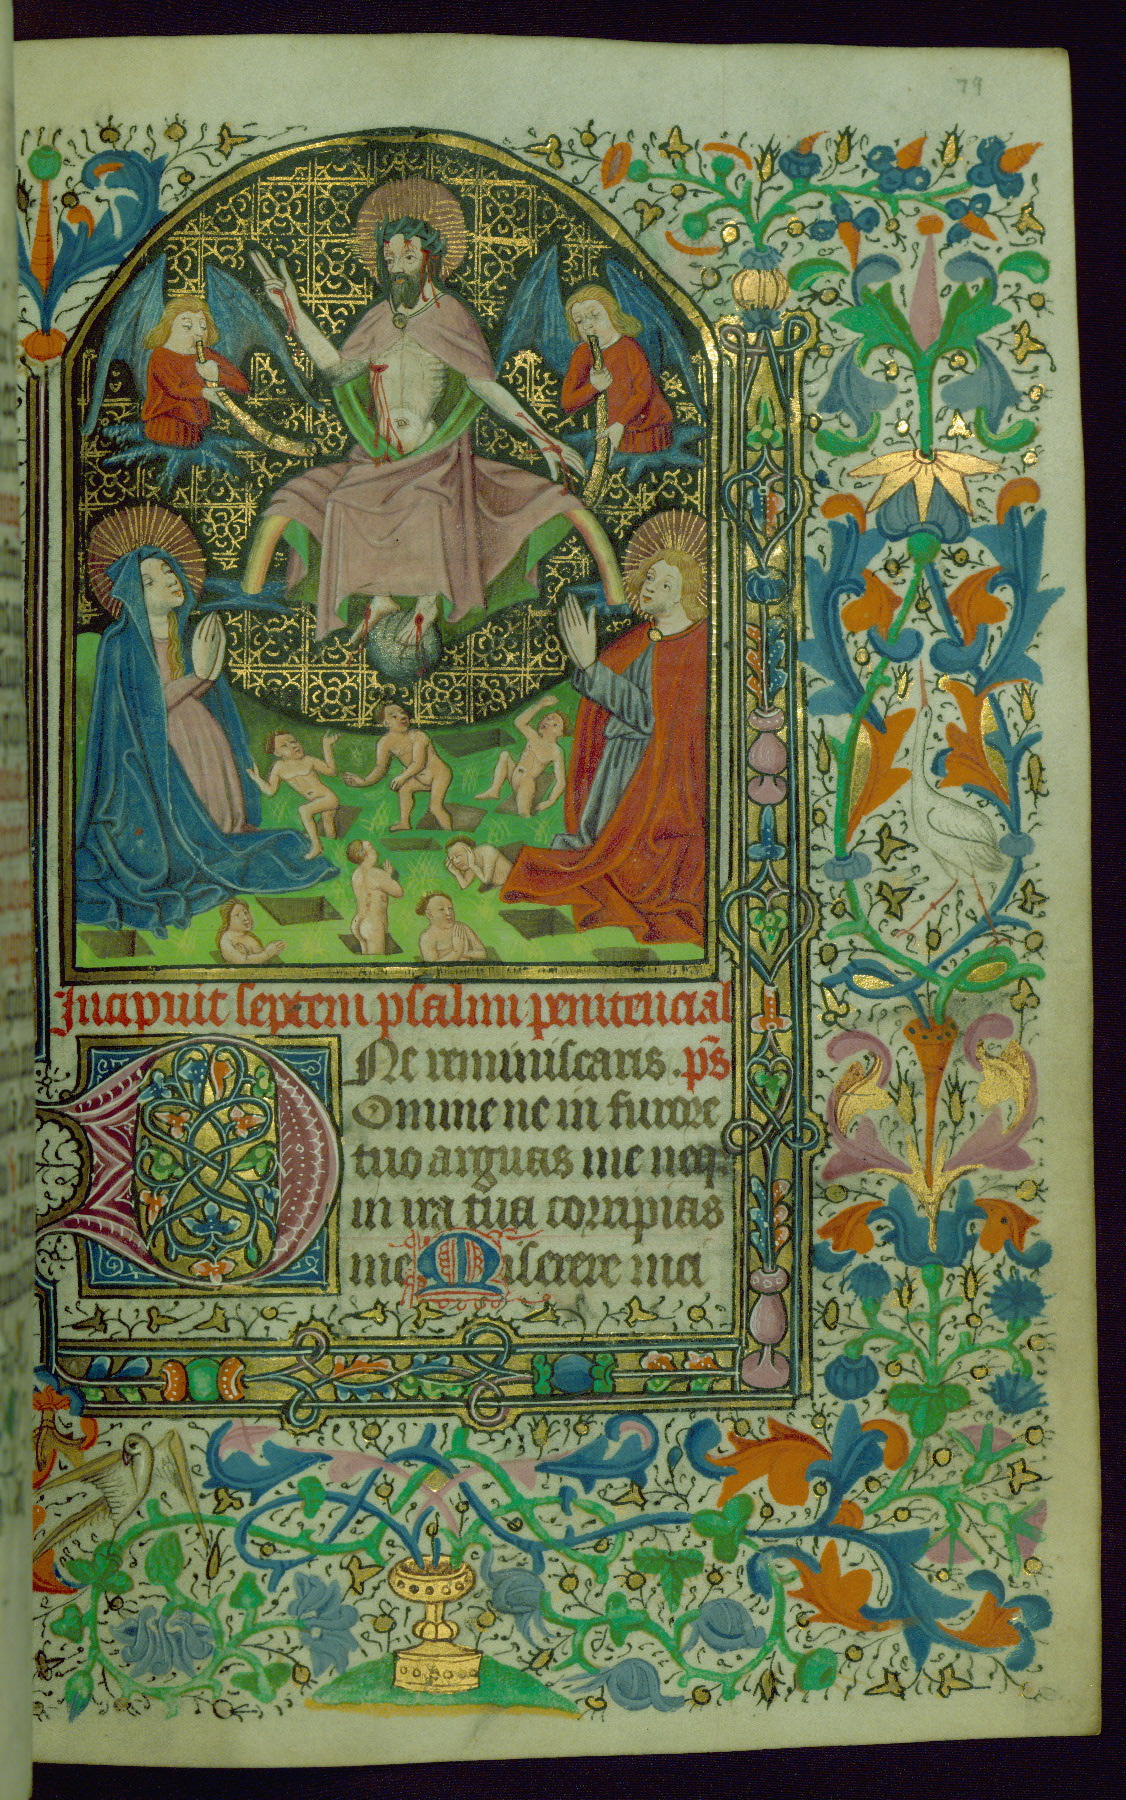 79
Incipuit septem psalmi penitencial
Ne reminiscaris . ps̄
Domine ne in furore
tuo arguas me neq
in ira tua corripias
me Miserere mei